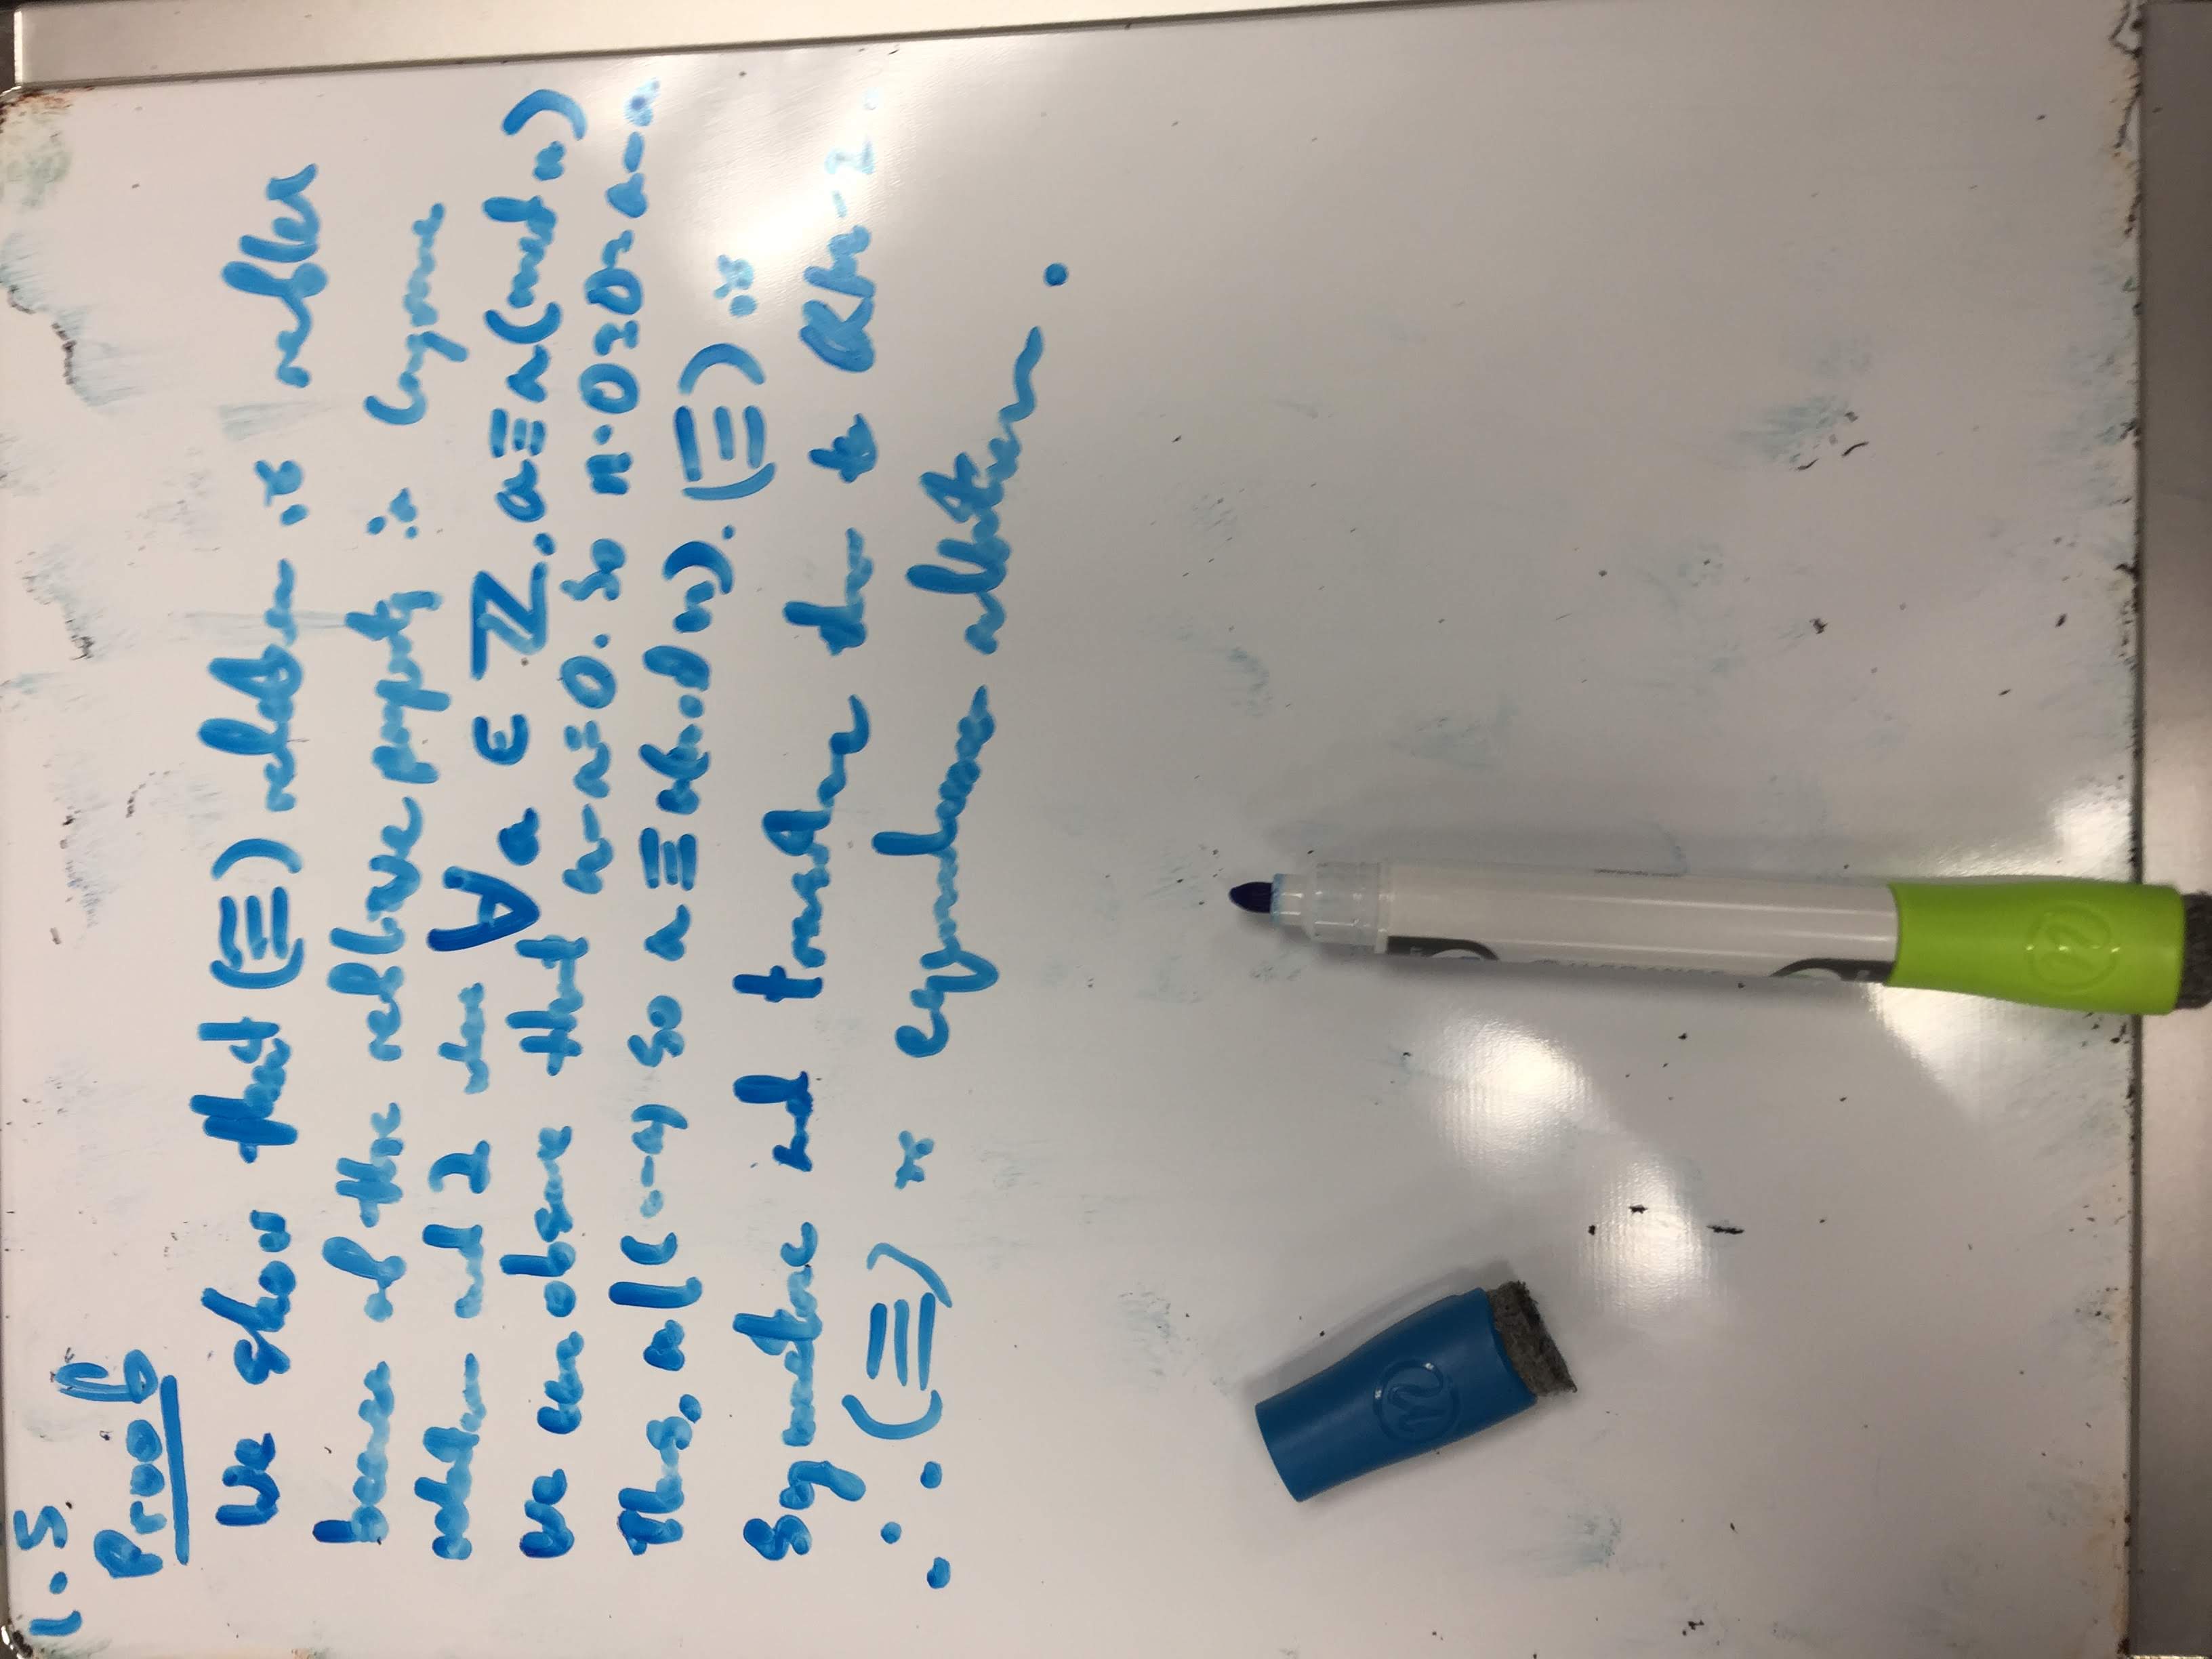 1.5
Proof
We show that (≡) relation is reflex
because of the reflexive property in Congruence
relation and 2 where ∀a ∈ ℤ, a≡a(mod n)
We can observe that a-a=0. So n·0=0=a-a
Thus, n|(a-a) so a≡a(mod n). (≡) is
Symmetric and transitive due to
∴ (≡) is equivalence relation.
n
n